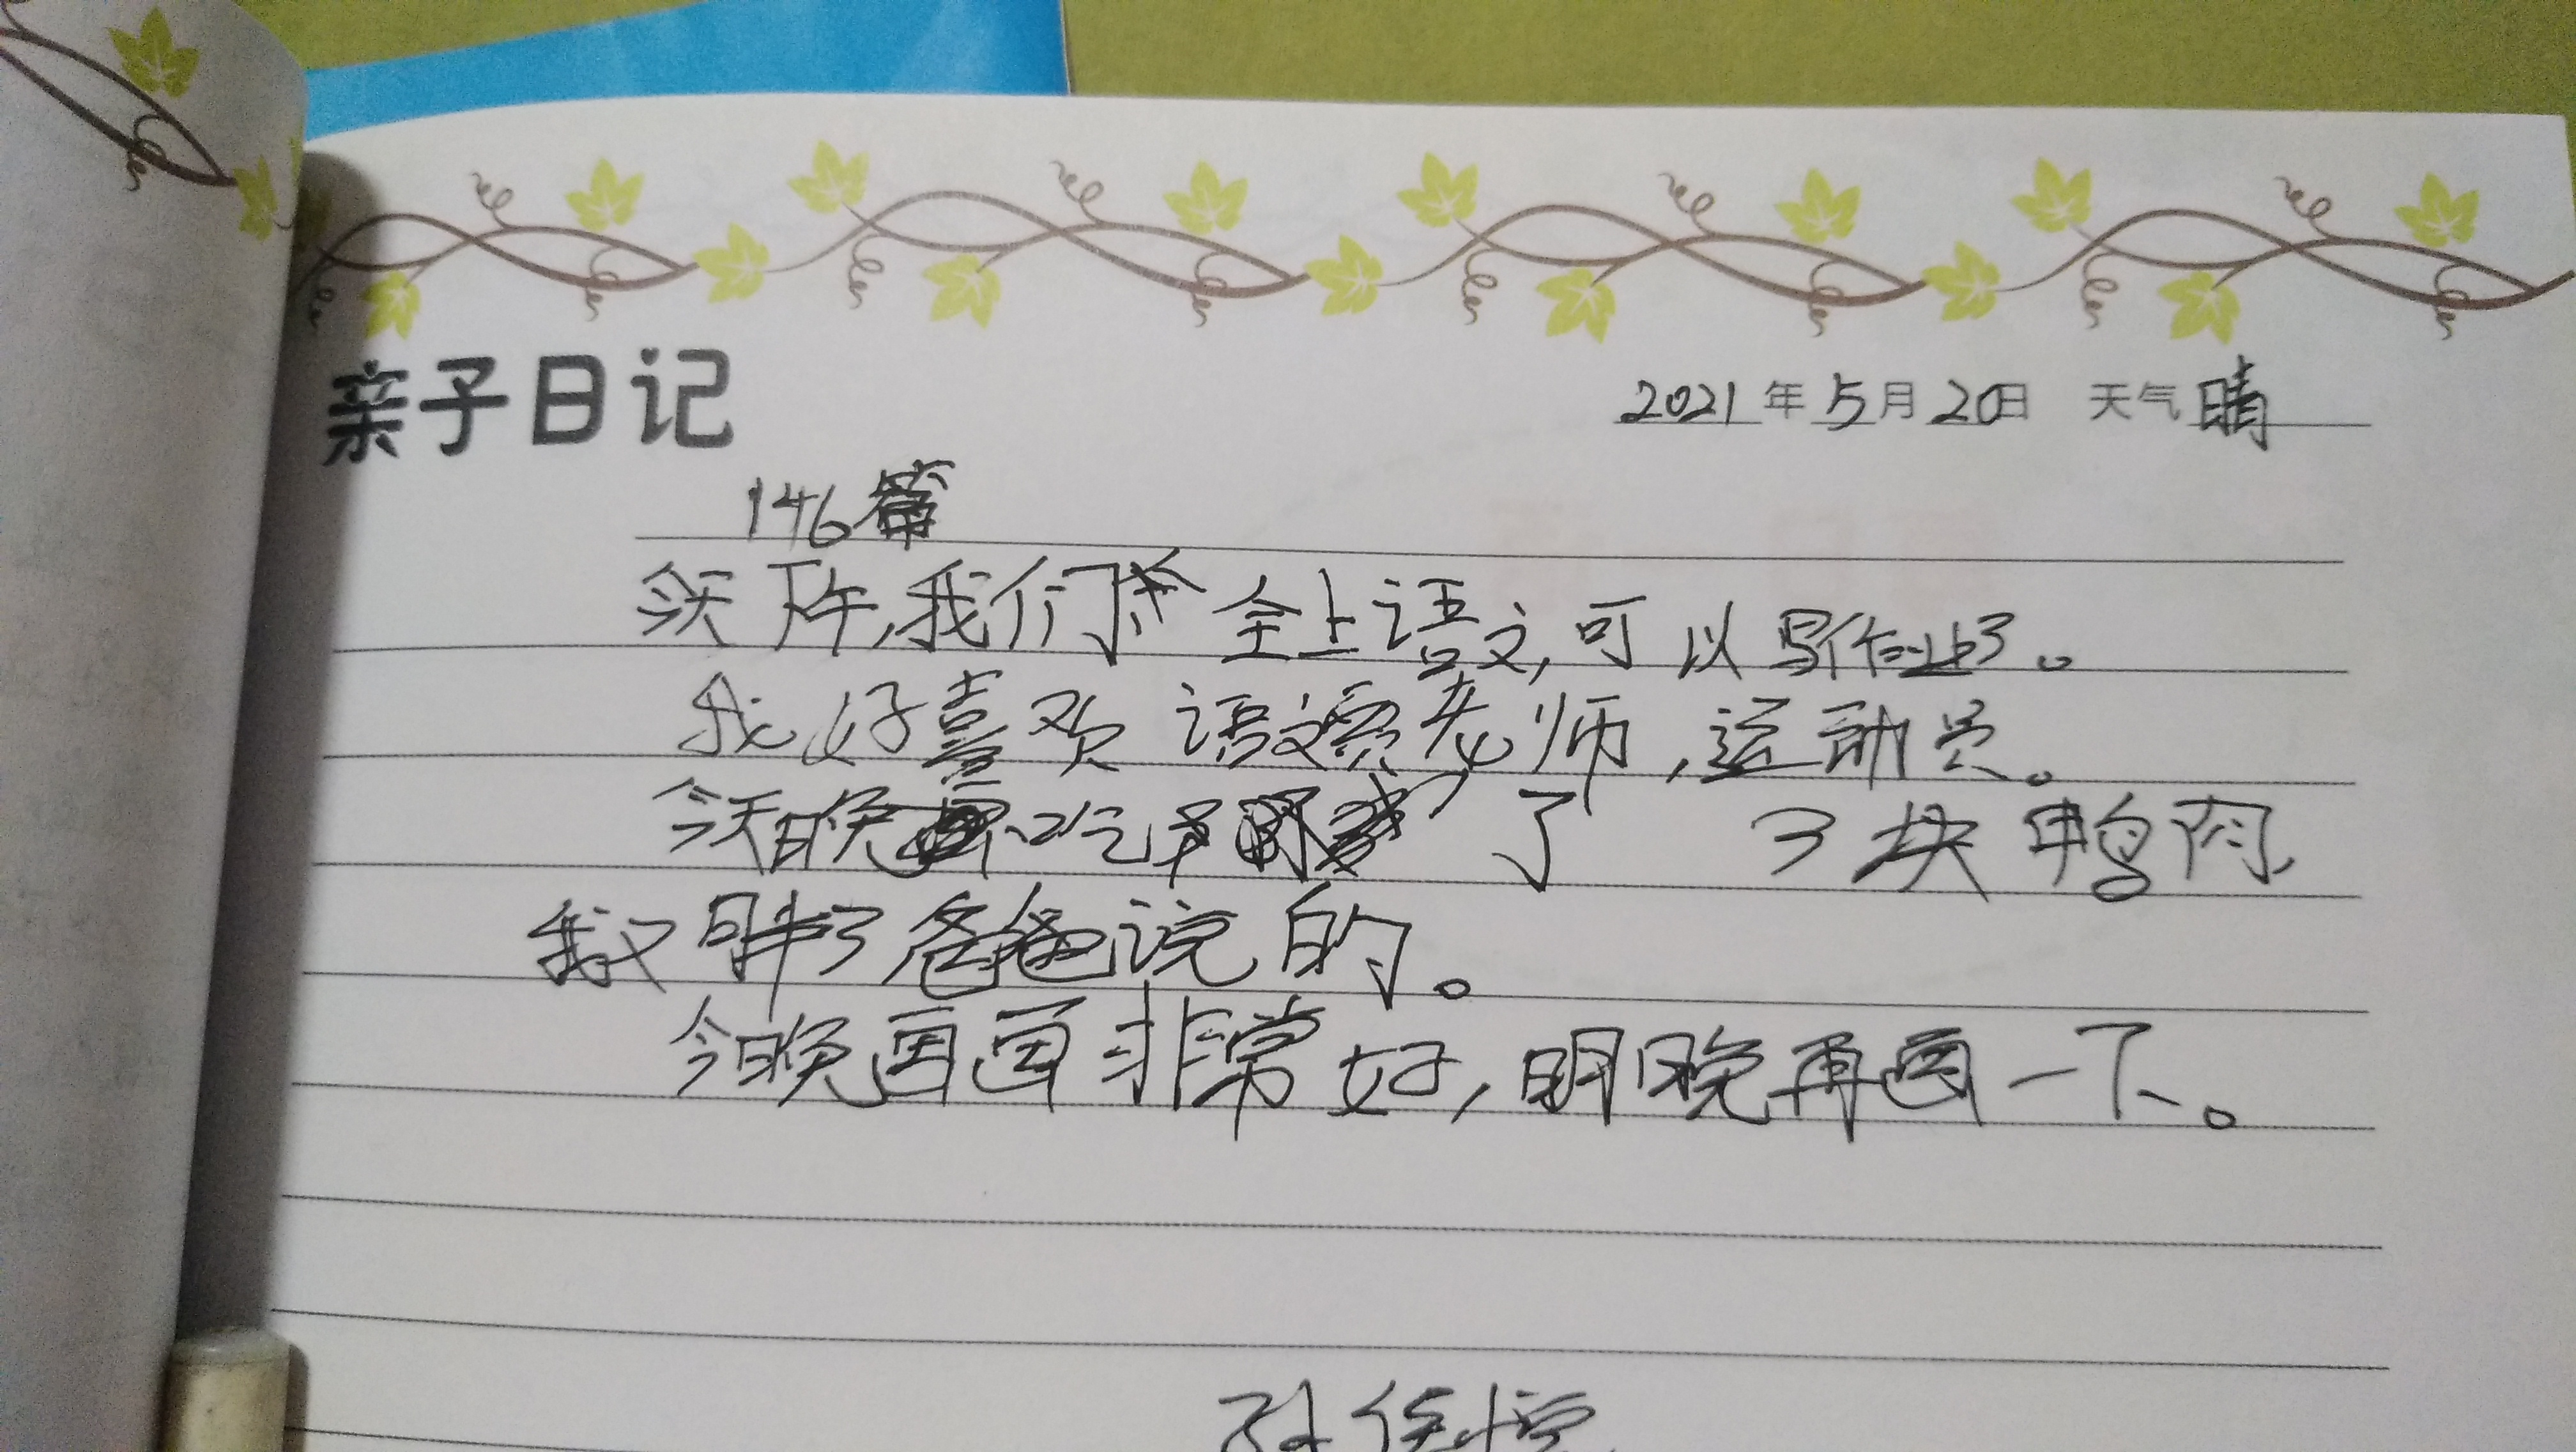 亲子日记
2021年5月20日 天气晴
146篇
今天下午,我们全上语文,可以写作业了。
我好喜欢语文老师,运动员。
今天晚吃了3块鸭肉,
我又用了爸爸说的。
今晚画画非常好,明晚再画一下。